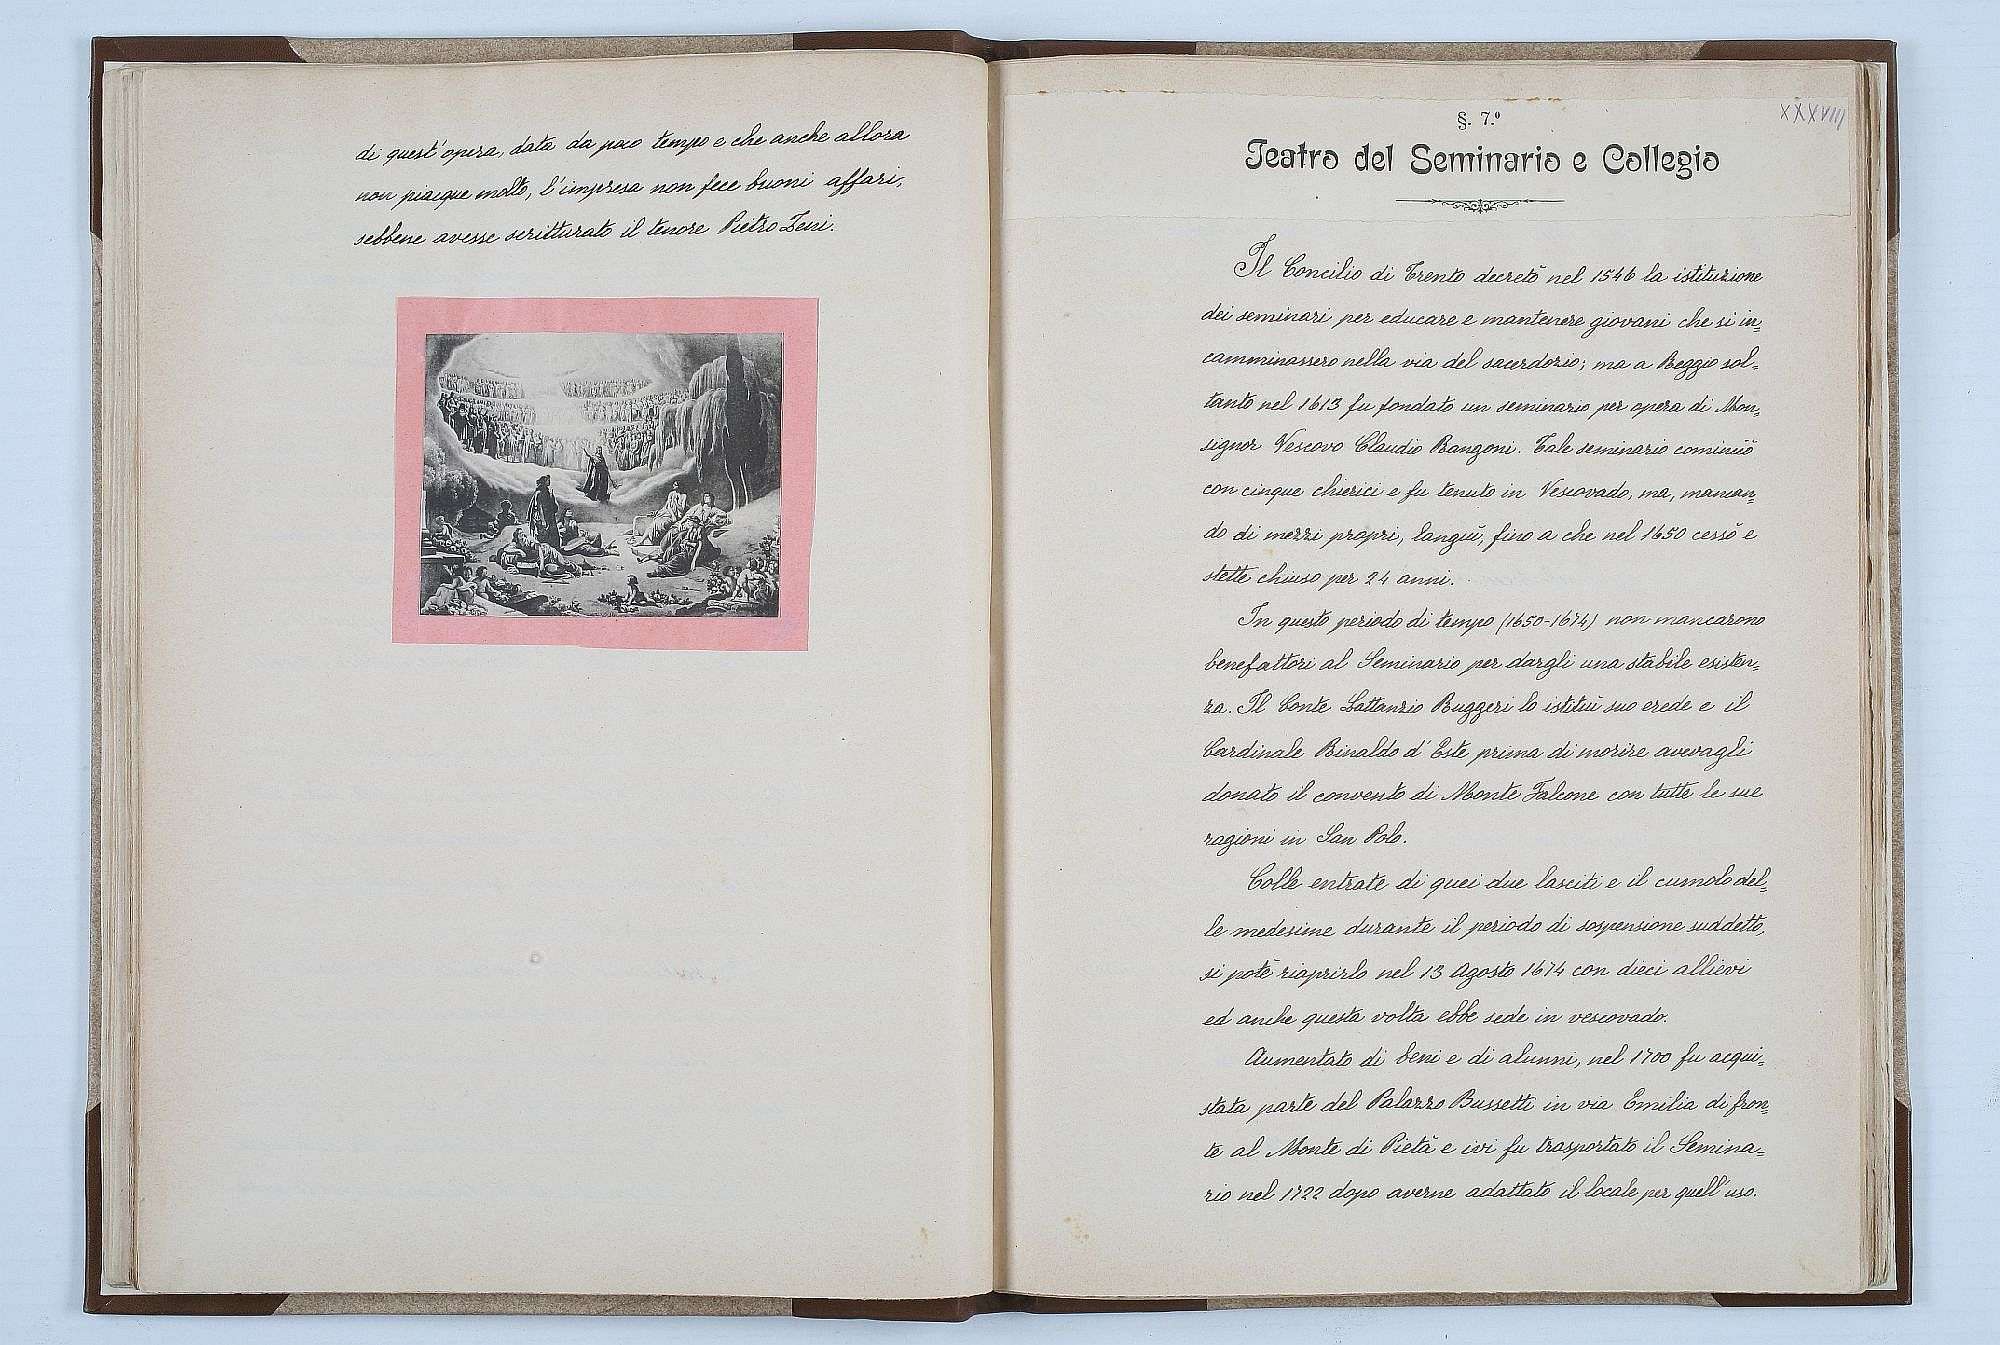 di quest'opera, data da poco tempo e che anche allora
non piacque molto, l'impresa non fece buoni affari,
sebbene avesse scritturato il tenore Pietro Zeni.
XXXVIII
§. 7.º
Teatro del Seminario e Collegio
Il Concilio di Trento decretò nel 1546 la istituzione
dei seminari per educare e mantenere giovani che si in=
camminassero nella via del sacerdozio; ma a Reggio sol=
tanto nel 1613 fu fondato un seminario per opera di Mon=
signor Vescovo Claudio Rangoni. Tale seminario cominciò
con cinque chierici e fu tenuto in Vescovado, ma, mancan=
do di mezzi propri, languì, fino a che nel 1650 cessò e
stette chiuso per 24 anni.
In questo periodo di tempo (1650-1674) non mancarono
benefattori al Seminario per dargli una stabile esisten=
za. Il Conte Lattanzio Ruggeri lo istituì suo erede e il
Cardinale Rinaldo d'Este prima di morire avevagli
donato il convento di Monte Falcone con tutte le sue
ragioni in San Polo.
Colle entrate di quei due lasciti e il cumolo del=
le medesime durante il periodo di sospensione suddetto,
si potè riaprirlo nel 13 Agosto 1674 con dieci allievi
ed anche questa volta ebbe sede in vescovado.
Aumentato di beni e di alunni, nel 1700 fu acqui=
stata parte del Palazzo Bussetti in via Emilia di fron=
te al Monte di Pietà e ivi fu trasportato il Semina=
rio nel 1722 dopo averne adattato il locale per quell'uso.